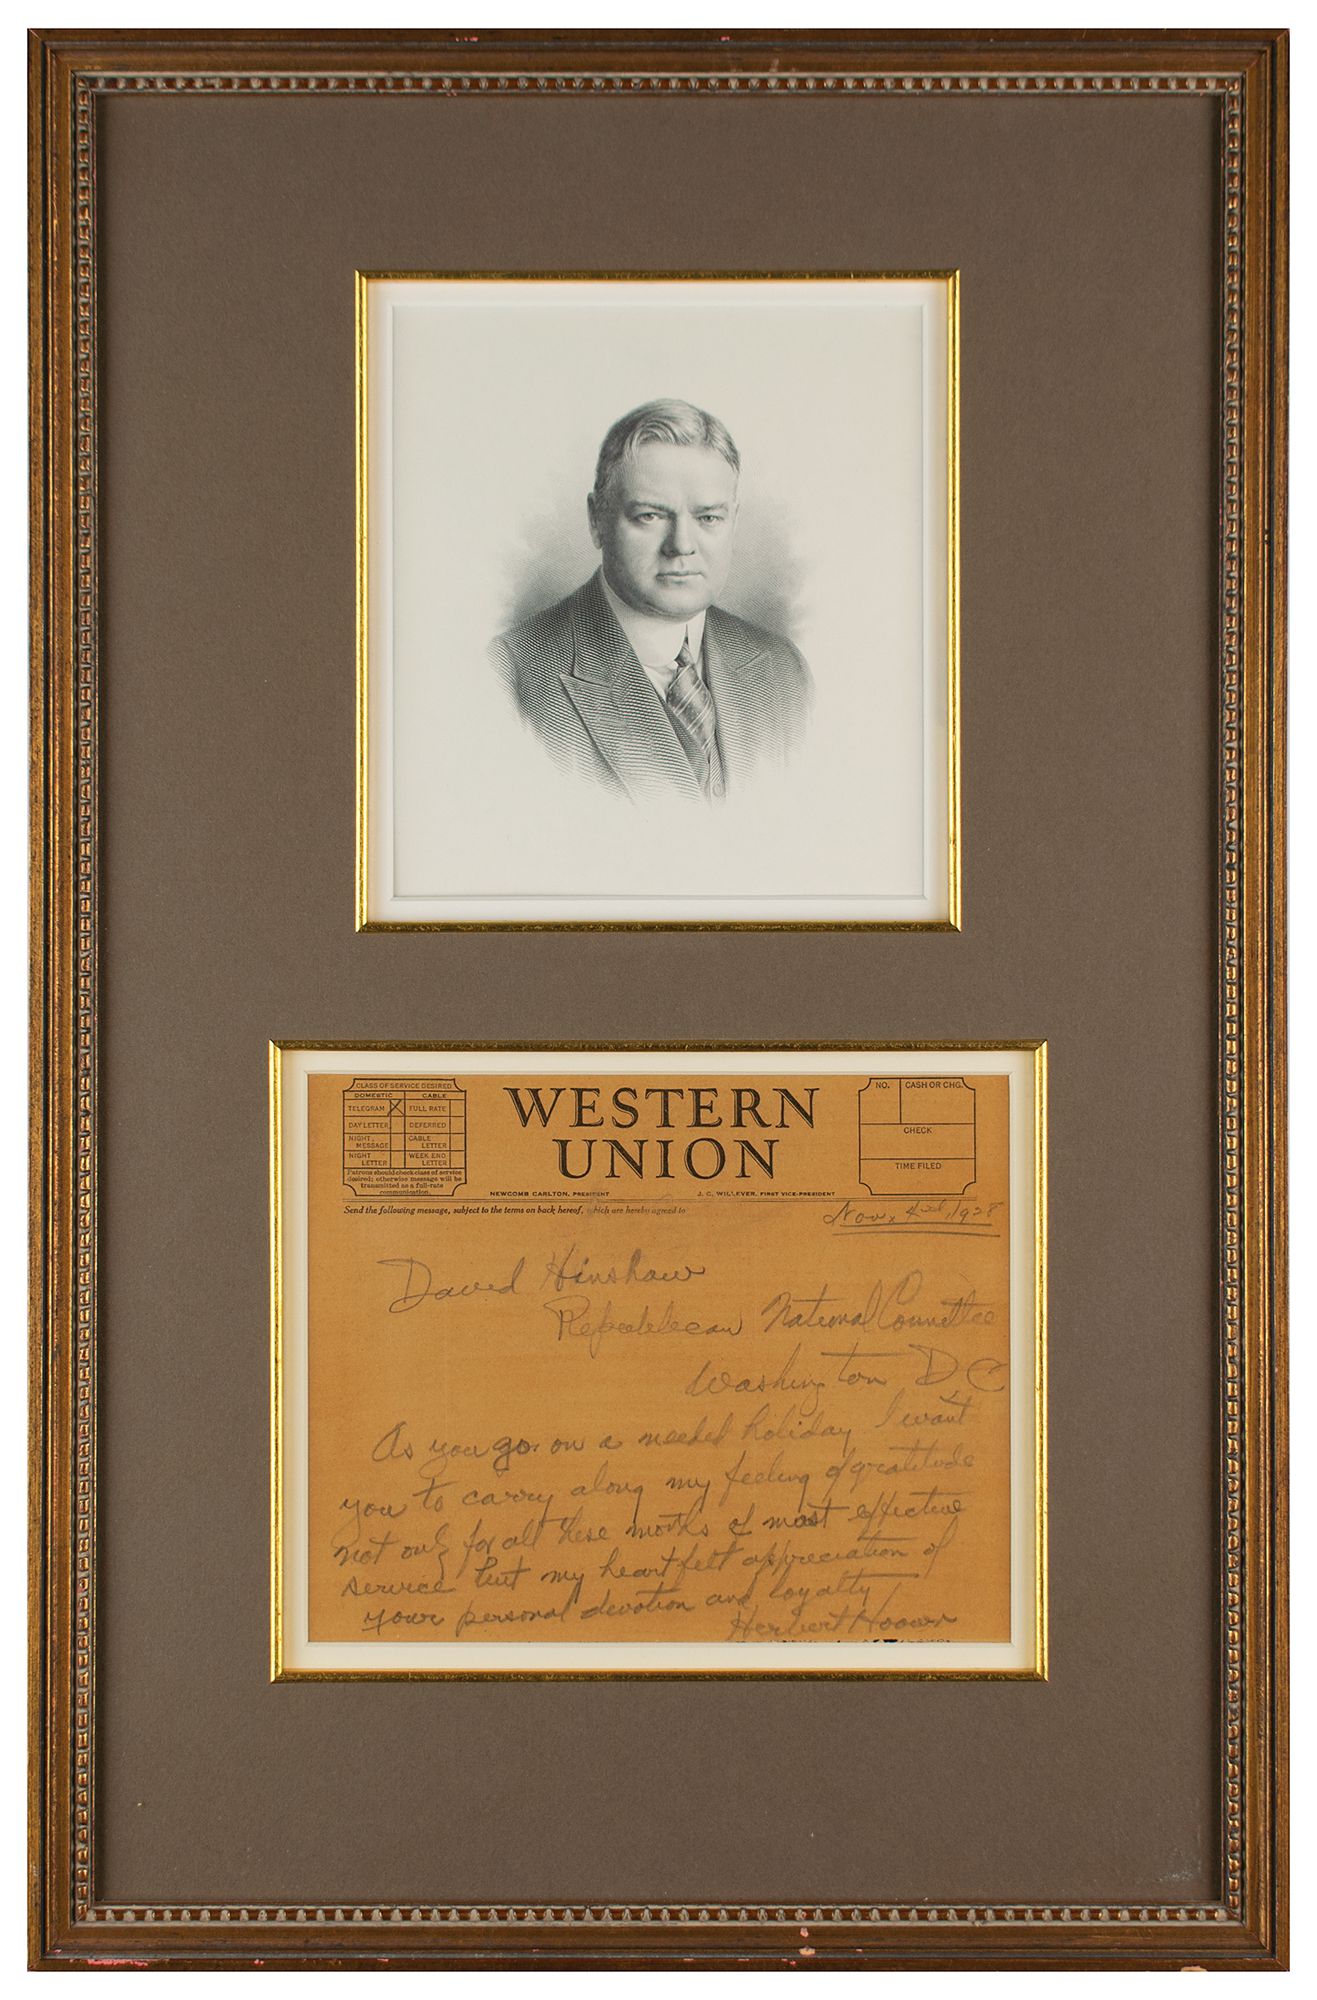 CLASS OF SERVICE DESIRED
DOMESTIC CABLE
TELEGRAM X FULL RATE
DAY LETTER DEFERRED
NIGHT MESSAGE CABLE LETTER
NIGHT LETTER WEEK END LETTER
Patrons should check class of service
desired; otherwise message will be
transmitted as a full-rate
communication.
WESTERN
UNION
NEWCOMB CARLTON, PRESIDENT J. C. WILLEVER, FIRST VICE-PRESIDENT
NO. CASH OR CHG.
CHECK
TIME FILED
Send the following message, subject to the terms on back hereof, which are hereby agreed to
Nov. 1928
David Hinshaw
Republican National Committee
Washington DC
As you go on a needed holiday I want
you to carry along my feeling of gratitude
not only for all these months of most effective
service but my heartfelt appreciation of
your personal devotion and loyalty
Herbert Hoover